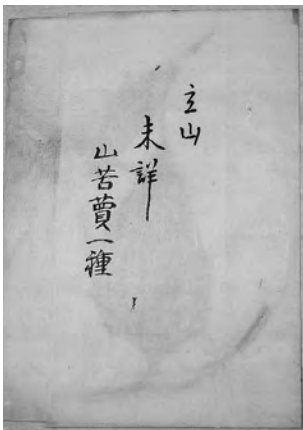 立山
未詳
山苦蕒一種